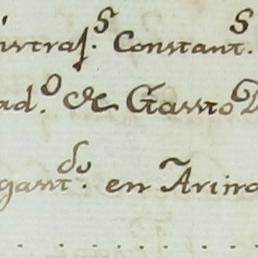 istras.^s Constant.^s
ad.^o de Gasto D
gast.^do en Arina